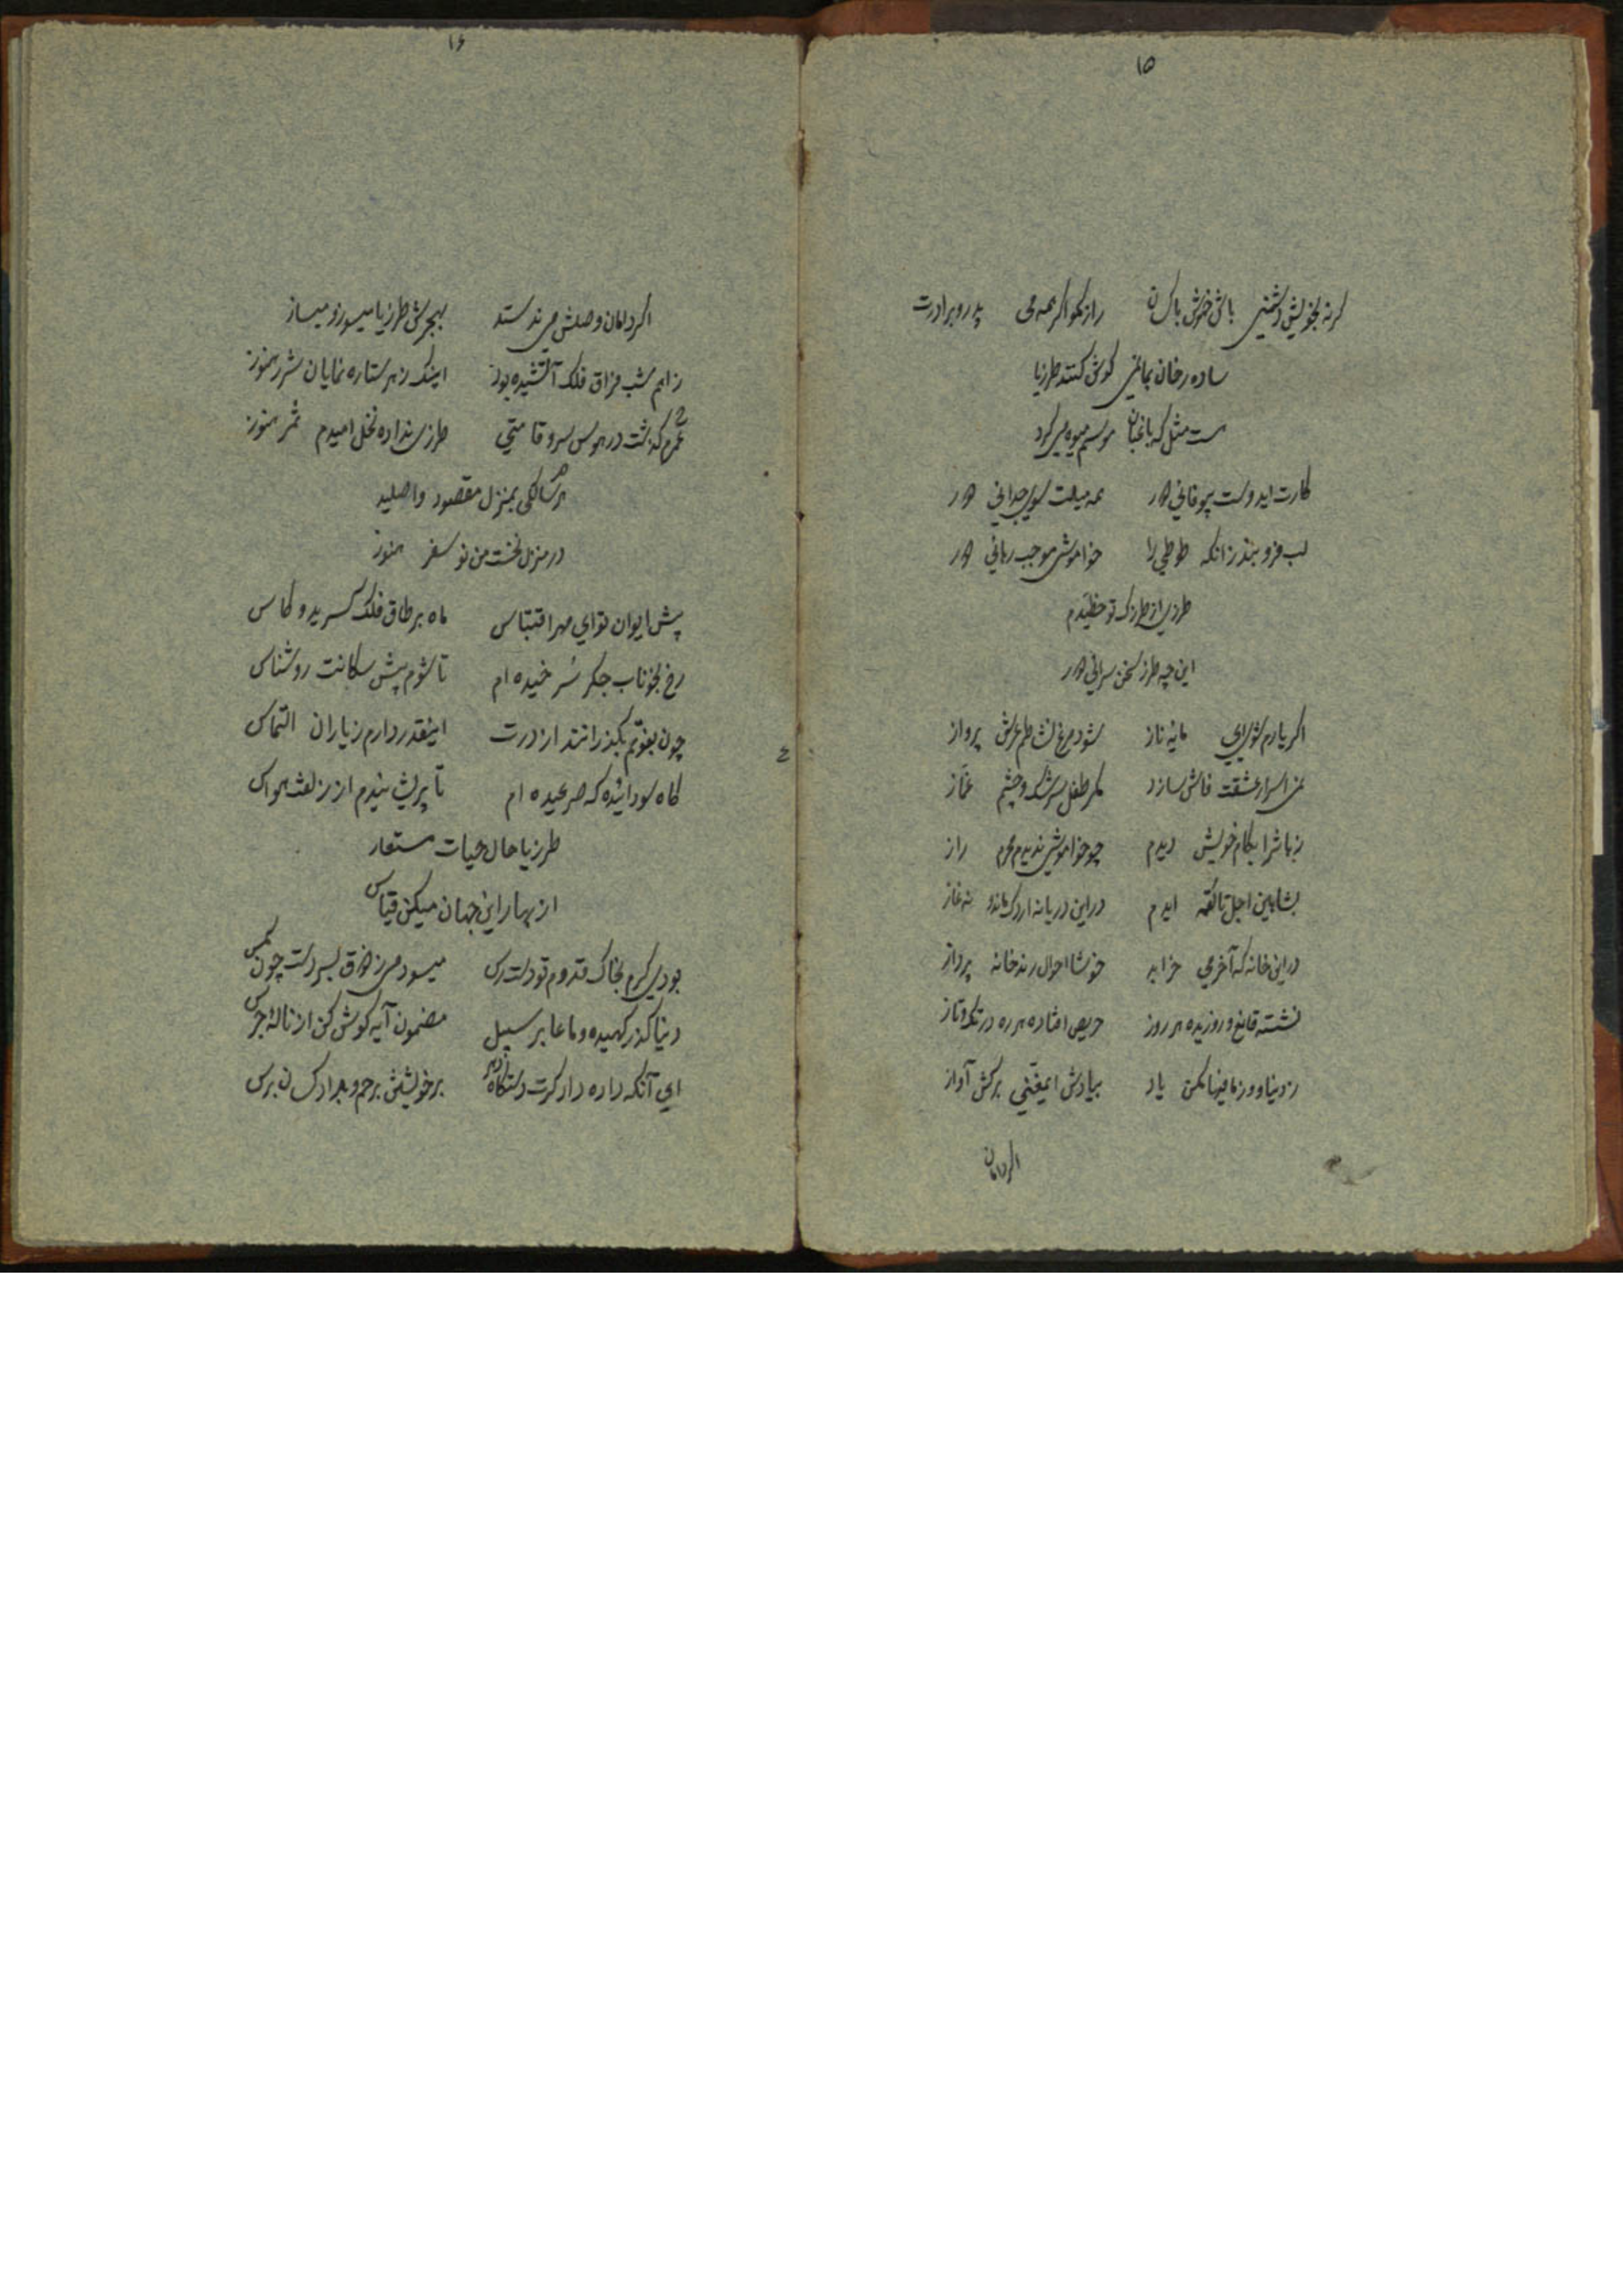 ۱۵
گرنه بخویش دشمنی باش خموش با کسان راز مگو اگر همه می پدر و برادرت
ساده رخان بمالشی گوش کنند طرزیا
ست مثل که باغبان موسم میوه می کرد
کارت ایدوست بیوفائی همه میلت بسوی جدائی
لب فرو بند زانکه طوطی را خوامشی موجب رهائی
طرزی از طرزک تو حظیدم
این چه طرز سخن سرائی
اگر یارم شود مایه ناز شود مرغ نشاطم عرش پرواز
اسرار عشقت فاش سازد مگر طفل سرشک و چشم غماز
زبانرا بکام خویش دیدم چو خواموشی ندیدم محرم راز
بشاهین اجل تا لقمه ایدم در این دریا نه اردک ماند و نه غاز
در این خانه که آخر می خرابد خوشا احوال رند خانه پرداز
نشسته قانع و روزیده هر روز حریص افتاده هر ره در تک و تاز
ز دنیا و ز مافیها مکن یاد بیادش ایمغنی برکش آواز
اگر دامان
۱۶
اگر دامان وصلش می ندستد بهجرش طرزیا میسوز و میساز
ز اهم شب فراق فلک آتشیده بود اینک ز هر ستاره نمایان شرر هنوز
عمرم گذشت در هوس سرو قامتی طرزی نداده نخل امیدم ثمر هنوز
هر سالکی بمنزل مقصود واصلید
در منزل نخست من نو سفر هنوز
پیش ایوان تو ای مهر اقتباس ماه بر طاق فلک کسرید و کاس
رخ بخوناب جگر سرخیده ام تا شوم پیش سگانت روشناس
چون بفوتم بگذرانند از درت اینقدر دارم ز یاران التماس
گاه سودائیده گه صرعیده ام تا پریشیدم از زلفش حواس
طرزیا حال حیات مستعار
از بهار این جهان میکن قیاس
بودی گرم بخاک قدوم تو دست رس میسودمی ز فرق بسر دست چون مگس
دنیا گذرگهیده و ما عابر سبیل مضمون آیه گوش کن از ناله جرس
ای آنکه داده دادگرت دستگاه برخویشتن برحم و بداد کسان برس